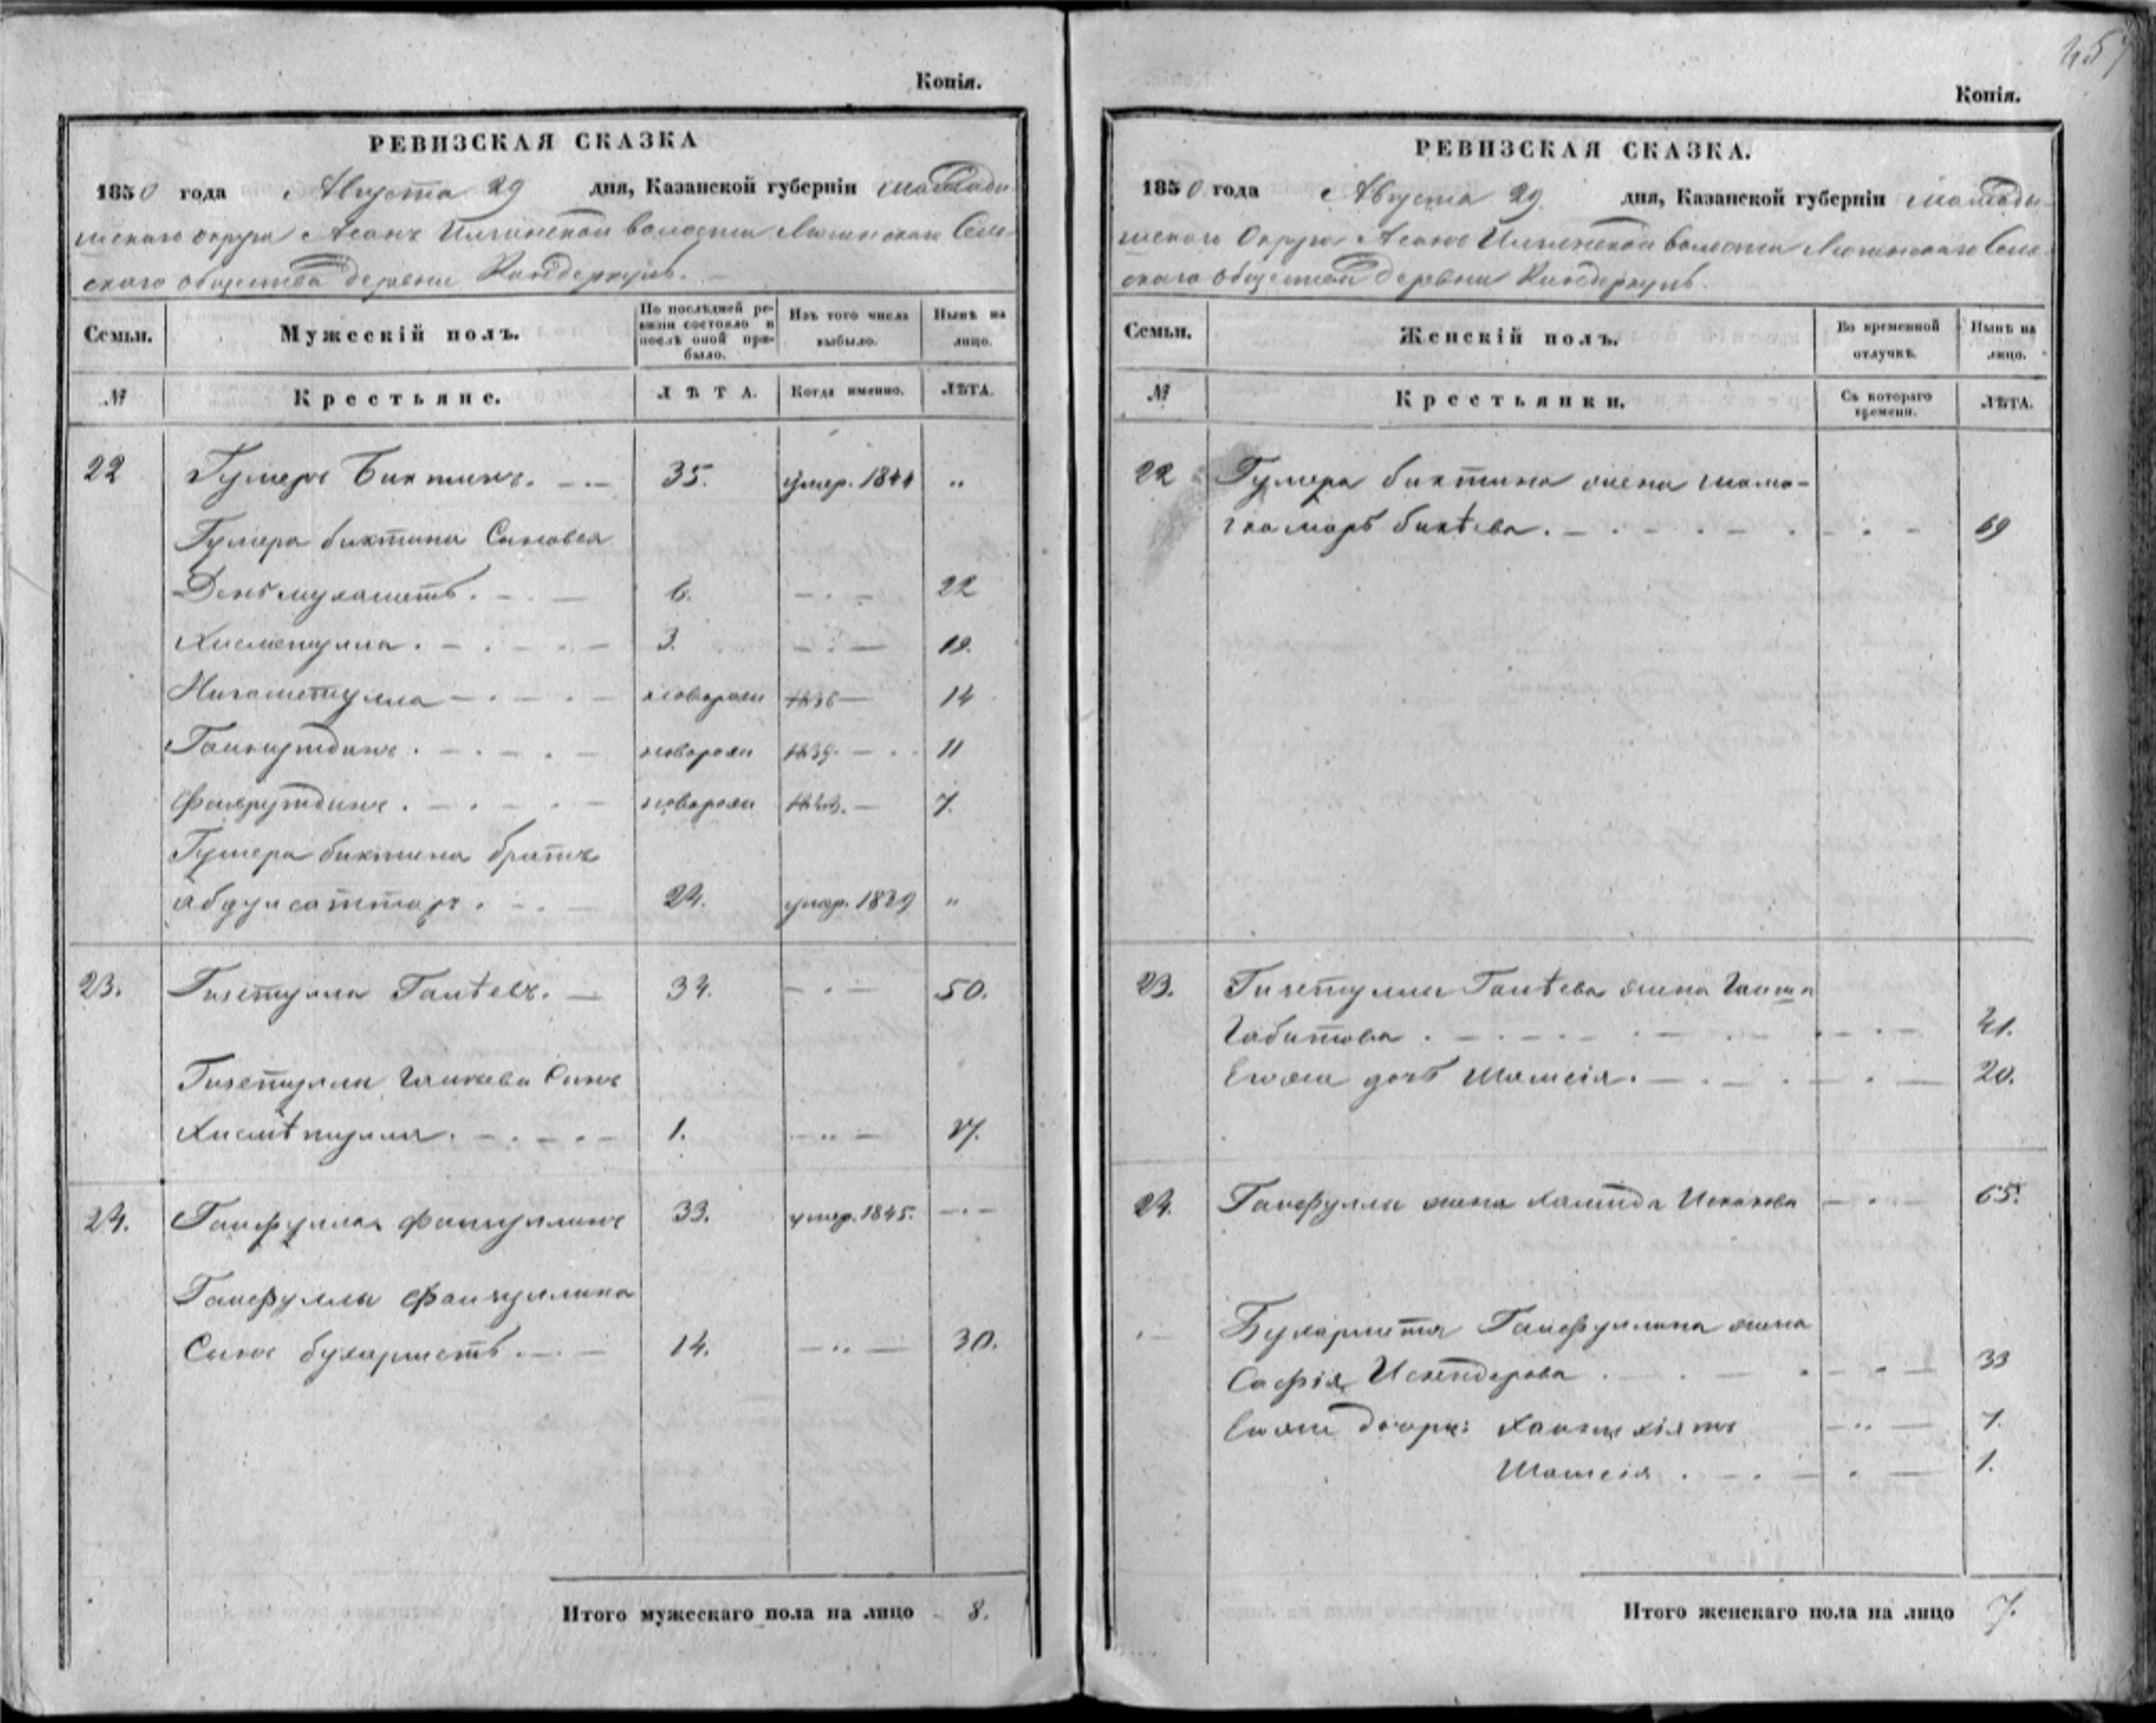 457
Копія.
РЕВИЗСКАЯ СКАЗКА
1850 года Августа 29 дня, Казанской губерніи Мамады-
шскаго округа Асанъ Илгинской волости Сель-
скаго общества деревни Киндеркуль.
Семьи.
Мужескій полъ.
По послѣдней ре-
визіи состояло и
послѣ оной при-
было.
Изъ того числа
выбыло.
Нынѣ на
лицо.
№
Крестьяне.
ЛѢТА.
Когда именно.
ЛѢТА.
22 Гумеръ Биктинъ. 35. умер. 1841 "
Гумера биктина Сыновья
Денъмухаметь. 6. 22
Хисметулла. 3. 19.
Нигометулла новорож 1836 14
Гайнутдинъ. новорож 1839 11
Фахрутдинъ. новорож 1843. 7.
Гумера биктина братъ
абдулсаттаръ. 24. умер. 1839 "
23. Гизетулла Ганѣевъ. 34. 50.
Гизетуллы Ганѣева Сынъ
Хисмѣтулла. 1. 17.
24. Ганфулла 33. умер. 1845.
Ганфуллы
Сынъ бухарметь. 14. 30.
Итого мужескаго пола на лицо 8.
Копія.
РЕВИЗСКАЯ СКАЗКА.
1850 года Августа 29 дня, Казанской губерніи Мамады-
шскаго Округа Асанъ Илгинской волости Сель-
скаго общества деревни Киндеркуль.
Семьи.
Женскій полъ.
Во временной
отлучкѣ.
Нынѣ на
лицо.
№
Крестьянки.
Съ котораго
времени.
ЛѢТА.
22 Гумера биктина жена
бикѣева. 69
23. Гизетуллы Ганѣева жена Гайша
Габитова 41.
Ихъ дочь Шамсія. 20.
24. Ганфуллы жена Халида Исхакова 65.
Бухарметя Ганфуллина жена
Сафія Искендерова 33
Ихъ дочери: 7.
Шамсія 1.
Итого женскаго пола на лицо 7.